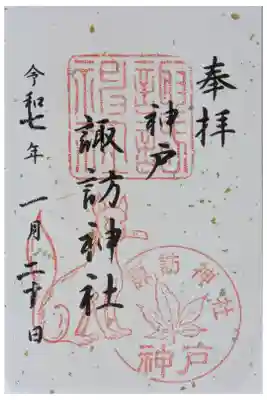 奉拝
神戸
諏訪神社
令和七年 一月二十日
諏訪神社
神戸